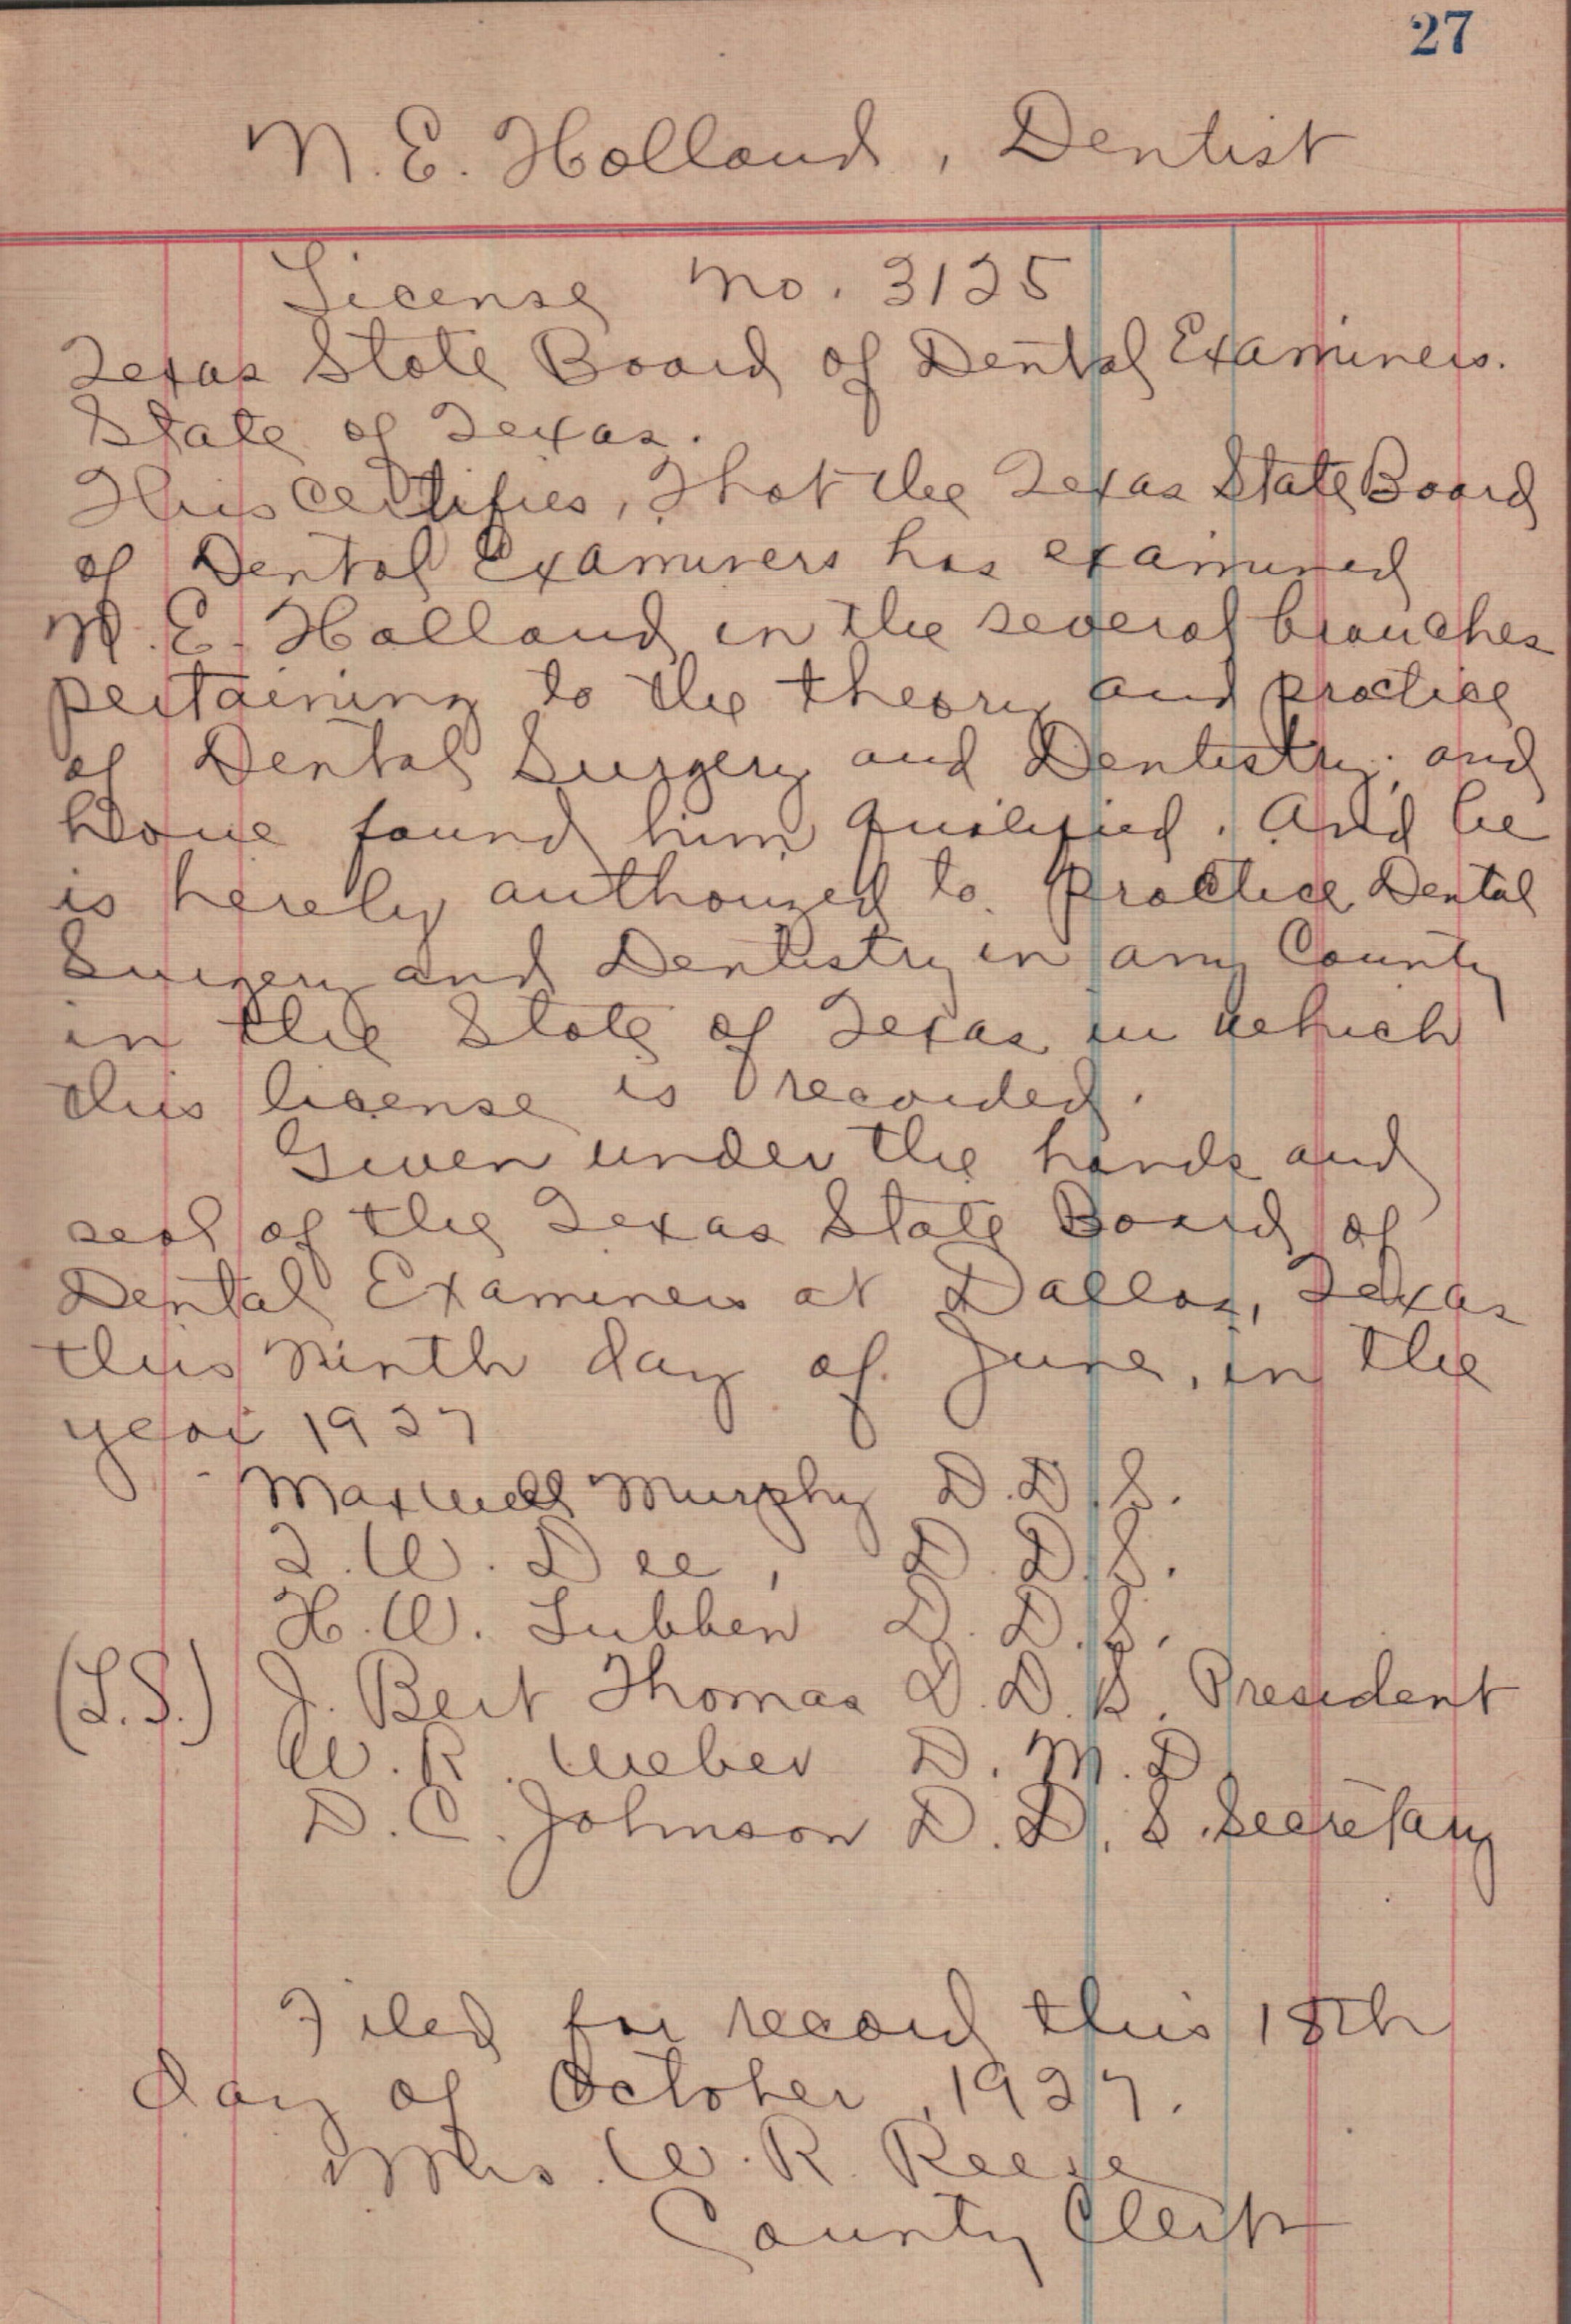 27
N. E. Holland, Dentist
License No. 3125
Texas State Board of Dental Examiners.
State of Texas.
This certifies, That the Texas State Board
of Dental Examiners has examined
N. E. Holland in the several branches
pertaining to the theory and practice
of Dental Surgery and Dentistry; and
have found him qualified. And he
is hereby authorized to practice Dental
Surgery and Dentistry in any County
in the State of Texas in which
this license is recorded.
Given under the hands and
seal of the Texas State Board of
Dental Examiners at Dallas, Texas
this Ninth day of June, in the
year 1927
Maxwell Murphy D.D.S.
T. W. Dee, D.D.S.
H. W. Lubben D.D.S.
(L.S.) J. Bert Thomas D.D.S. President
W. R. Weber D.M.D
D. C. Johnson D.D.S. Secretary
Filed for record this 18th
day of October, 1927.
Mrs. W. R. Reese
County Clerk